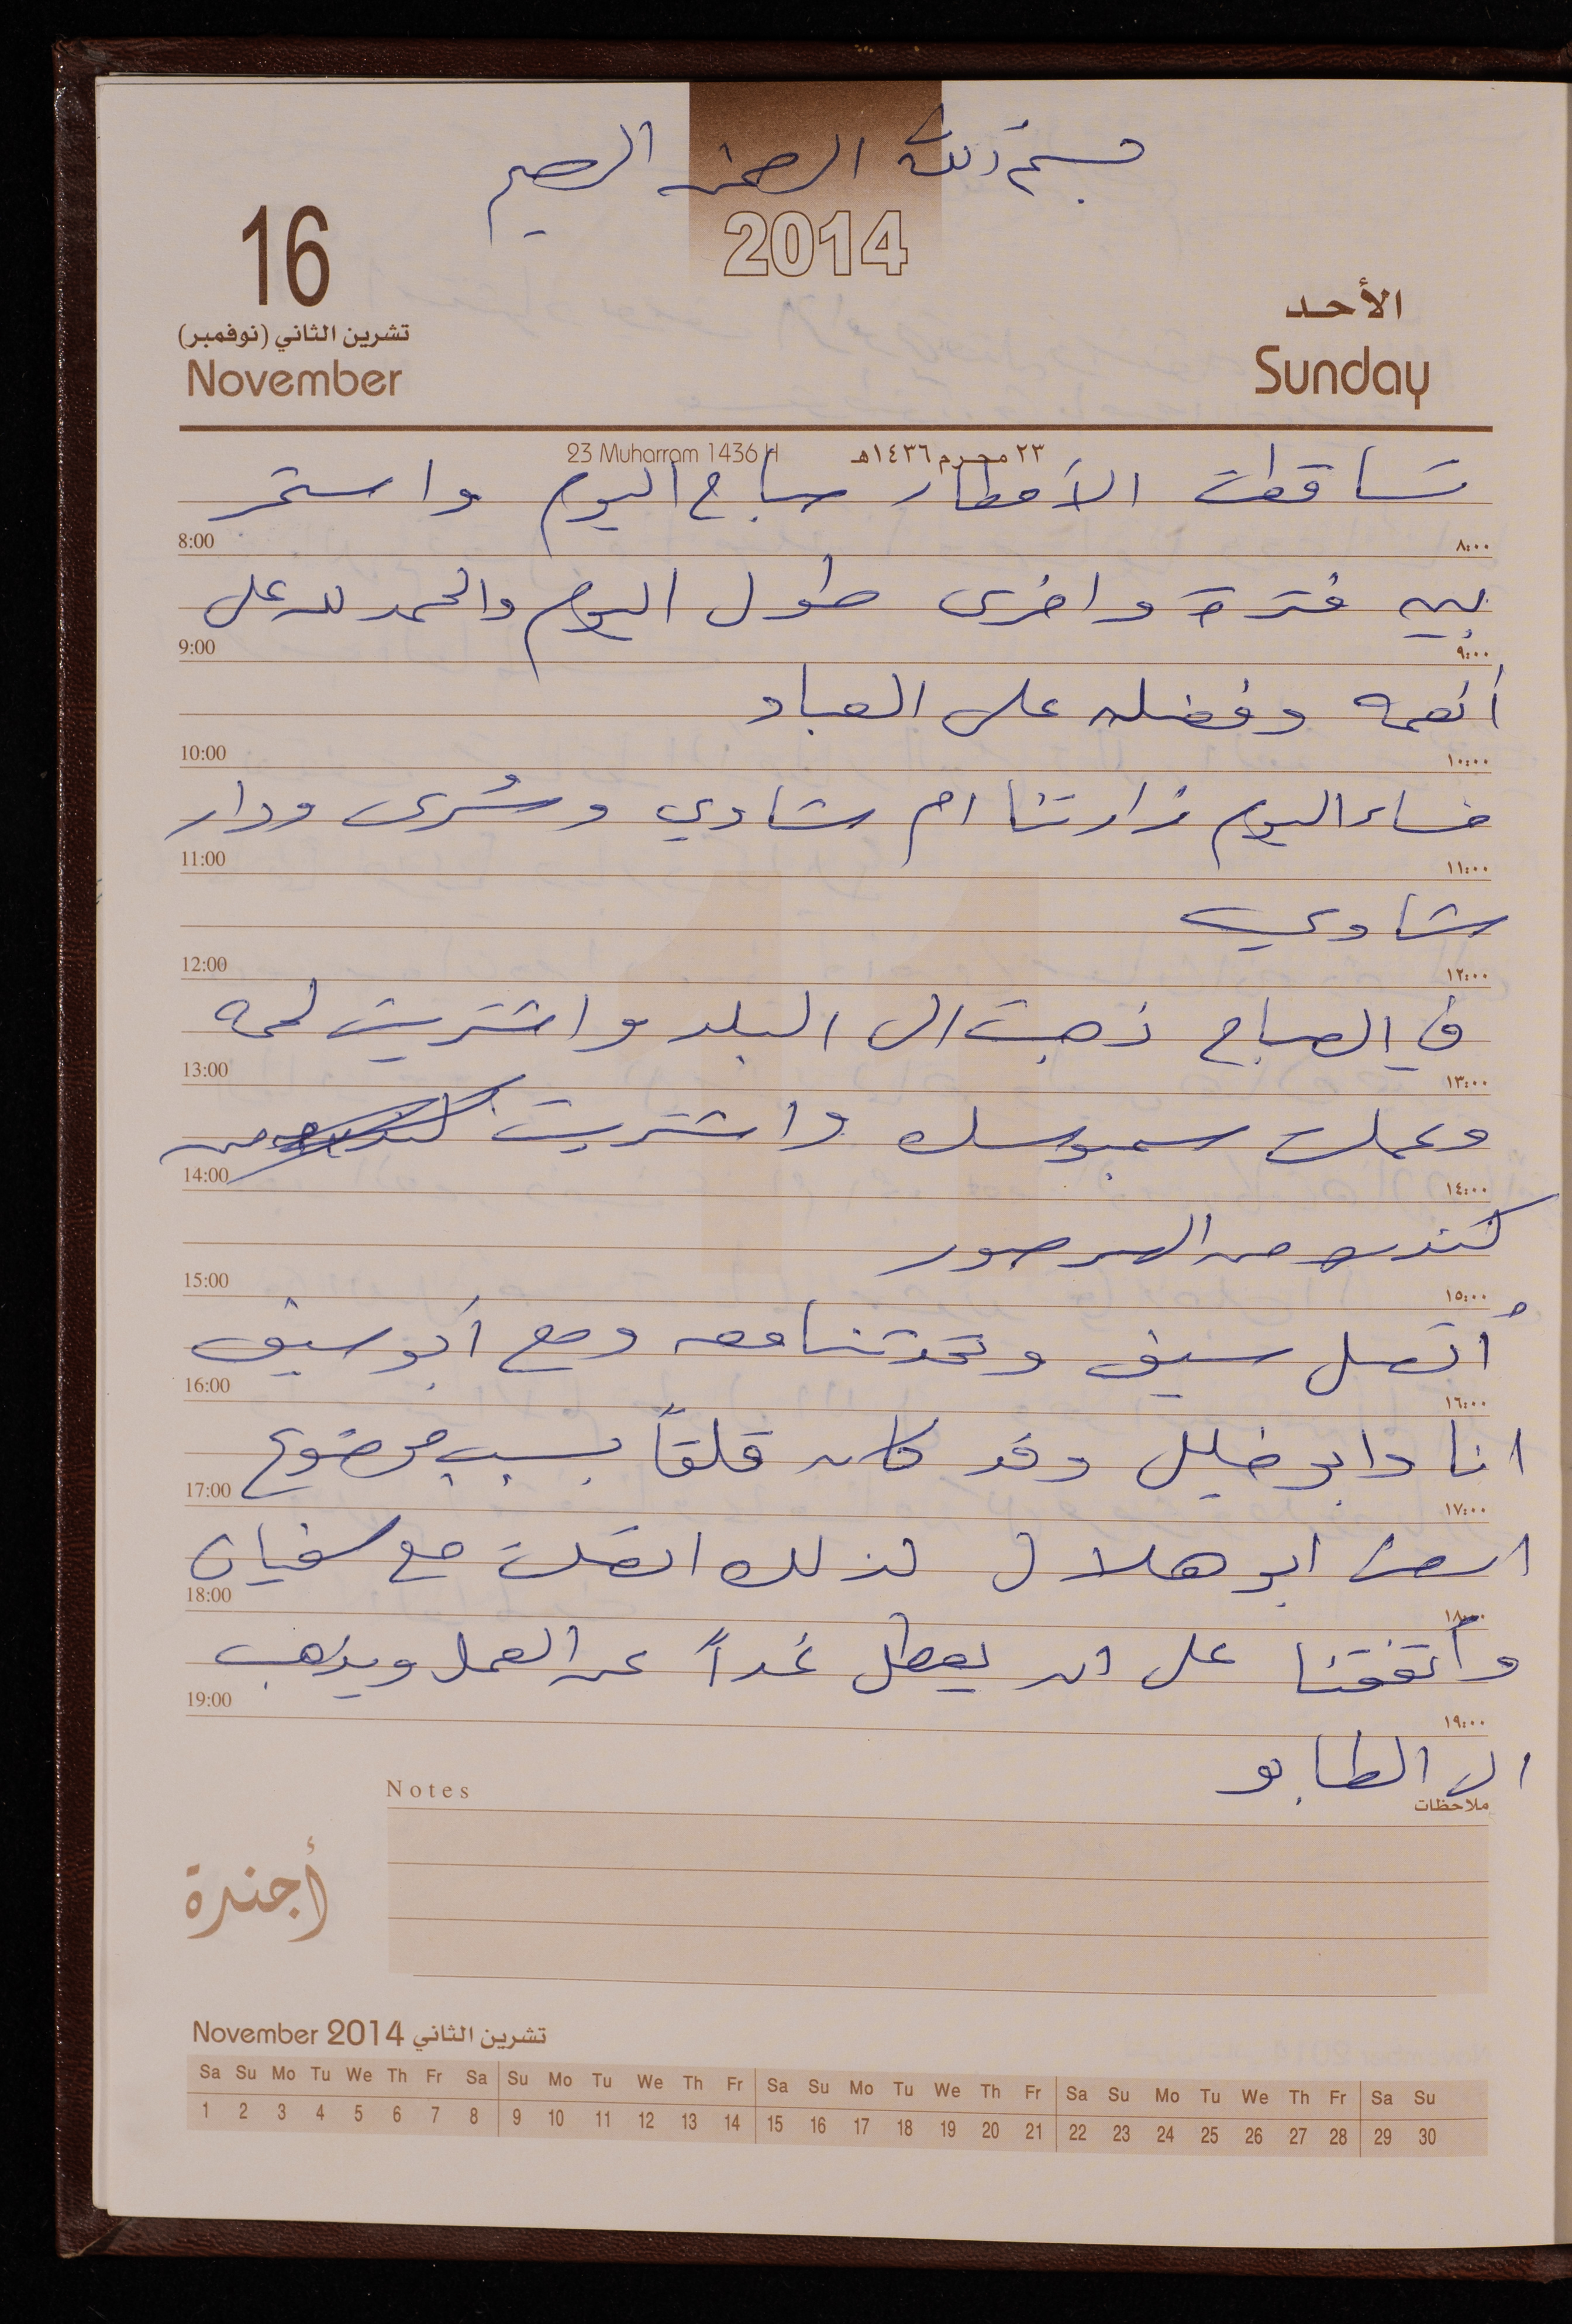 بسم الله الرحمن الرحيم
2014
16
تشرين الثاني (نوفمبر)
November
الأحد
Sunday
23 Muharram 1436 H
٢٣ محرم ١٤٣٦هـ
تساقطت الأمطار صباح اليوم واستمر
8:00 ٨:٠٠
بين فترة واخرى طول اليوم والحمد لله على
9:00 ٩:٠٠
أنعمه وفضله على العباد
10:00 ١٠:٠٠
مساء اليوم زارتنا ام شادي وسُرى ودار
11:00 ١١:٠٠
شادي
12:00 ١٢:٠٠
في الصباح ذهبت الى البلد واشتريت لحمه
13:00 ١٣:٠٠
وعملت سمبوسك واشتريت
14:00 ١٤:٠٠
كندره من
15:00 ١٥:٠٠
أُتصل سيف وتحدثنا معه ومع أبو سيف
16:00 ١٦:٠٠
انا وابو خليل وقد كان قلقاً بسبب موضوع
17:00 ١٧:٠٠
ابو هلال لذلك اتصلت مع سفيان
18:00 ١٨:٠٠
وأتفقنا على ان يعطل غداً عن العمل ويذهب
19:00 ١٩:٠٠
الى الطابو
Notes ملاحظات
أجندة
November 2014 تشرين الثاني
Sa Su Mo Tu We Th Fr Sa Su Mo Tu We Th Fr Sa Su Mo Tu We Th Fr Sa Su Mo Tu We Th Fr Sa Su
1 2 3 4 5 6 7 8 9 10 11 12 13 14 15 16 17 18 19 20 21 22 23 24 25 26 27 28 29 30